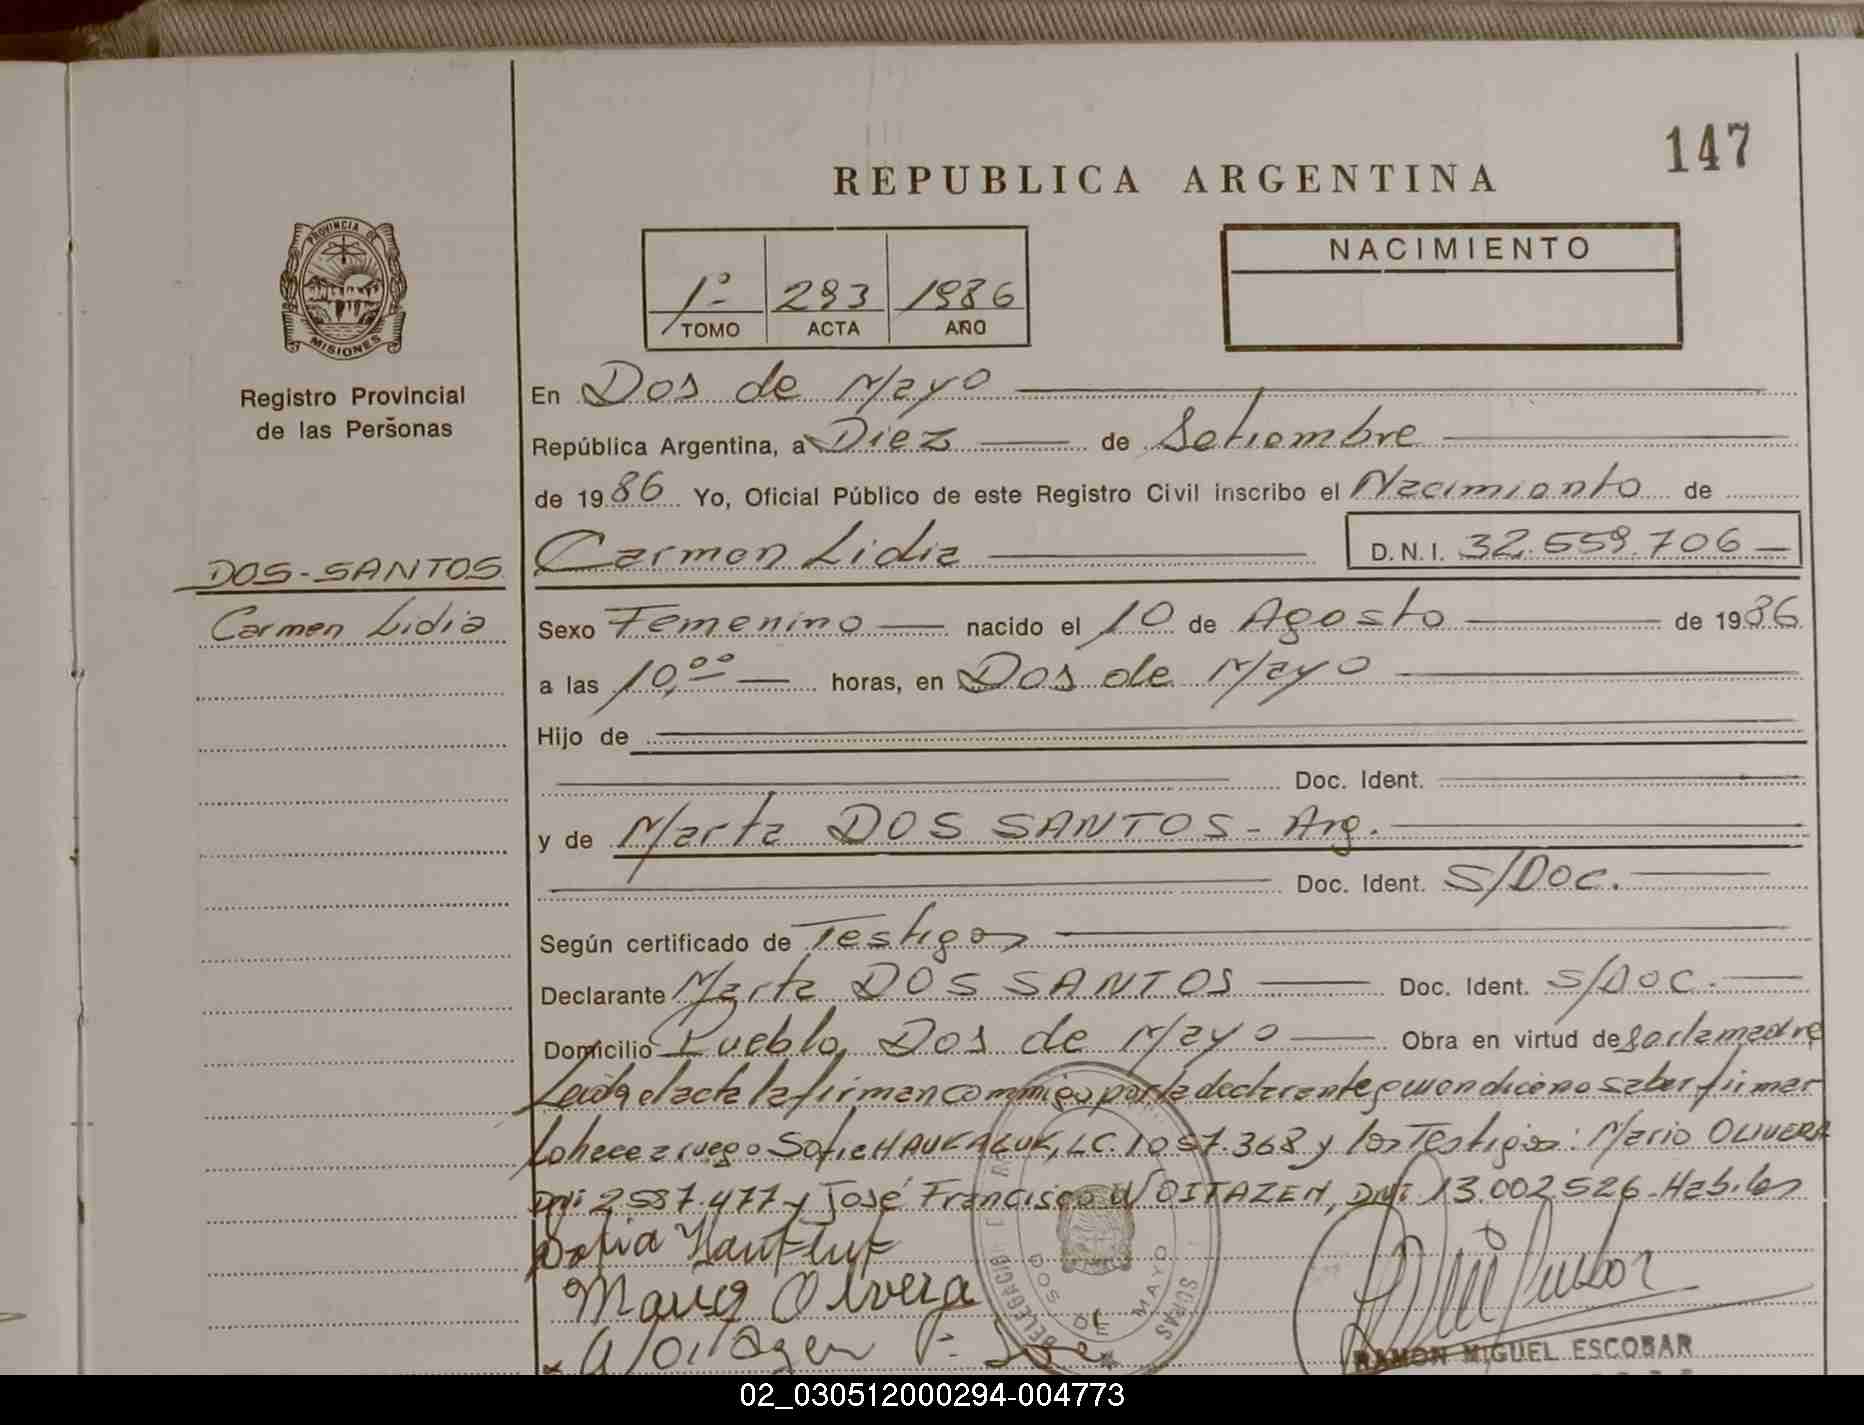 147
REPUBLICA ARGENTINA
PROVINCIA DE
MISIONES
Registro Provincial
de las Personas
1º- 293 1986
TOMO ACTA AÑO
NACIMIENTO
En Dos de Mayo
República Argentina, a Diez de Setiembre
de 1986 Yo, Oficial Público de este Registro Civil inscribo el Nacimiento de
DOS-SANTOS
Carmen Lidia
Carmen Lidia D.N.I. 32.559.706
Sexo Femenino nacido el 10 de Agosto de 1986
a las 10,00 horas, en Dos de Mayo
Hijo de
Doc. Ident.
y de Marta DOS SANTOS - Arg.
Doc. Ident. S/Doc.
Según certificado de Testigos
Declarante Marta DOS SANTOS Doc. Ident. S/DOC.
Domicilio Pueblo, Dos de Mayo Obra en virtud de ser la madre
Leida el acta la firman conmigo por la declarante quien dice no saber firmar
lo hace a ruego Sofia HAUKALUK, LC. 1057.368 y los Testigos: Mario OLIVERA
DNI 2587.477 y José Francisco WOITAZEN, DNI 13.002.526. Habiles
Sofia
Mario Olivera
DELEGACIÓN
DOS DE MAYO
RAMON MIGUEL ESCOBAR
02_030512000294-004773